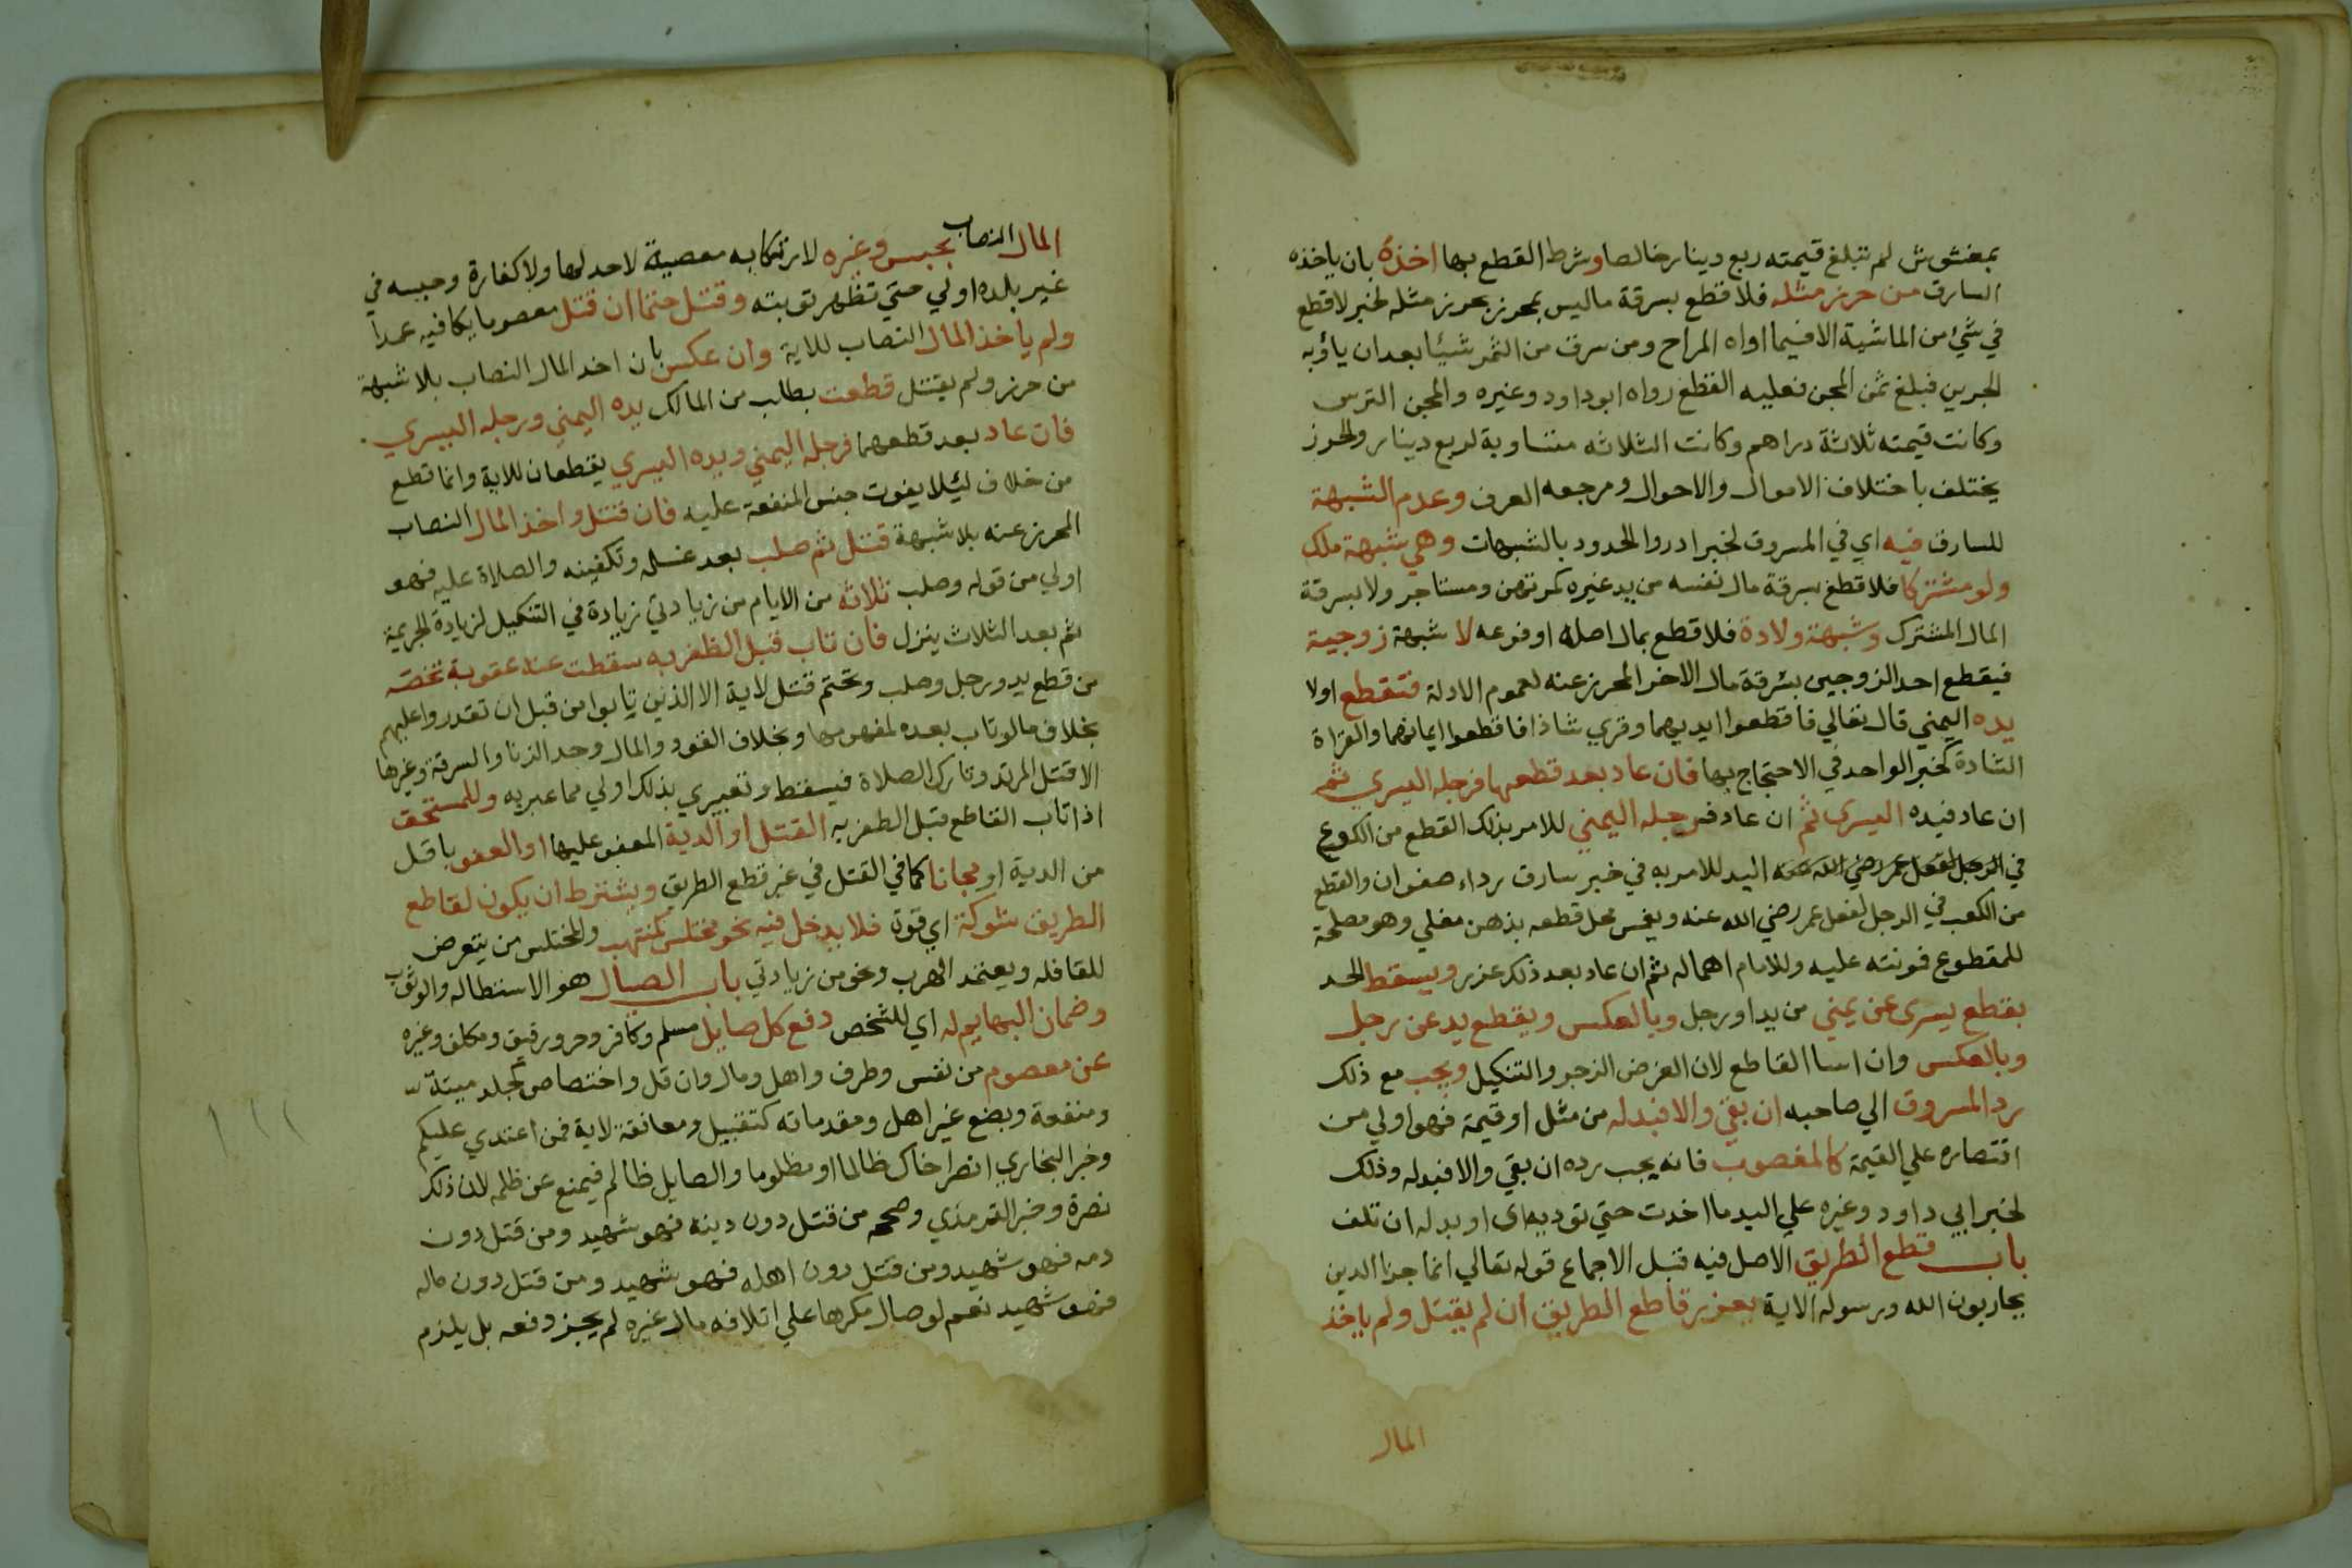 بمغشوش لم تبلغ قيمته ربع دينار خالصا وشرط القطع بها اخذه بان ياخذه
السارق من حرز مثله فلا قطع بسرقة ماليس بمحرز بحرز مثله لخبر لا قطع
في شيء من الماشية الا فيما اواه المراح ومن سرق من الثمر شيئا بعد ان يأؤيه
الجرين فبلغ ثمن المجن فعليه القطع رواه ابو داود وغيره والمجن الترس
وكانت قيمته ثلاثة دراهم وكانت الثلاثه متساوية لربع دينار والحرز
يختلف باختلاف الاموال والاحوال ومرجعه العرف وعدم الشبهة
للسارق فيه اي في المسروق لخبر ادروا الحدود بالشبهات وهي شبهة ملك
ولو مشتركا فلا قطع بسرقة مال نفسه من يد غيره كمرتهن ومستاجر ولا بسرقة
المال المشترك وشبهة ولادة فلا قطع بمال اصله او فرعه لا شبهة زوجية
فيقطع احد الزوجين بسرقة مال الاخر المحرز عنه لعموم الادلة فتقطع اولا
يده اليمني قال تعالي فاقطعوا ايديهما وقري شاذا فاقطعوا ايمانهما والقراة
الشاذة كخبر الواحد في الاحتجاج بها فان عاد بعد قطعها فرجله اليسري ثم
ان عاد فيده اليسرى ثم ان عاد فرجله اليمني للامر بذلك القطع من الكوع
في الرجل لفعل عمر رضي الله عنه اليد للامر به في خبر سارق رداء صفوان والقطع
من الكعب في الرجل لفعل عمر رضي الله عنه ويغمس محل قطعه بدهن مغلي وهو مصلحة
للمقطوع فمونته عليه وللامام اهماله ثم ان عاد بعد ذلك عزر ويسقط الحد
بقطع يسرى عن يمني من يد او رجل وبالعكس وبقطع يد عن رجل
وبالعكس وان اسا القاطع لان الغرض الزجر والتنكيل ويجب مع ذلك
رد المسروق الي صاحبه ان بقي والا فبدله من مثل او قيمة فهو اولي من
اقتصاره علي القيمة كالمغصوب فانه يجب رده ان بقي والا فبدله وذلك
لخبر ابي داود وغيره علي اليد ما اخذت حتي توديه اي او بدله ان تلف
باب قطع الطريق الاصل فيه قبل الاجماع قوله تعالي انما جزا الذين
يحاربون الله ورسوله الاية يعزر قاطع الطريق ان لم يقتل ولم ياخذ
المال
المال النصاب بحبس وغيره لارتكابه معصية لا حد لها ولا كفارة وحبسه في
غير بلده اولي حتي تظهر توبته وقتل حتما ان قتل معصوما يكافيه عمدا
ولم ياخذ المال النصاب للاية وان عكس بان اخد المال النصاب بلا شبهة
من حرز ولم يقتل قطعت بطلب من المالك يده اليمني ورجله اليسري
فان عاد بعد قطعهما فرجله اليمني ويده اليسري يقطعان للاية وانما قطع
من خلاف ليئلا يفوت جنس المنفعة عليه فان قتل واخذ المال النصاب
المحرز عنه بلا شبهة قتل ثم صلب بعد غسله وتكفينه والصلاة عليه فهو
اولي من قوله وصلب ثلاثه من الايام من زيادتي زيادة في التنكيل لزيادة الجريمة
ثم بعد الثلاث ينزل فان تاب قبل الظفر به سقطت عنه عقوبة تخصه
من قطع يد ورجل وصلب وتحتم قتل لاية الا الذين تابوا من قبل ان تقدروا عليهم
بخلاف مالو تاب بعده لمفهومها وبخلاف القود والمال وحد الزنا والسرقة وغيرها
الا قتل المرتد وتارك الصلاة فيسقط وتعبيري بذلك اولي مما عبر به وللمستحق
اذا تاب القاطع قبل الظفر به القتل او الدية المعفو عليها او العفو باقل
من الدية او مجانا كما في القتل في غير قطع الطريق ويشترط ان يكون لقاطع
الطريق شوكة اي قوة فلا يدخل فيه نحو مختلس كمنتهب والمختلس من يتعرض
للقافله ويعتمد الهرب ونحو من زيادتي باب الصيال هو الاستطاله والوثوب
وضمان البهايم له اي للشخص دفع كل صايل مسلم وكافر وحر ورقيق ومكلف وغيره
عن معصوم من نفس وطرف واهل ومال وان قل واختصاص كجلد ميتة
ومنفعة وبضع غير اهل ومقدماته كتقبيل ومعانقة لاية فمن اعتدي عليكم
وخبر البخاري انصر اخاك ظالما او مظلوما والصايل ظالم فيمنع عن ظلمه لان ذلك
نصرة وخبر الترمذي وصححه من قتل دون دينه فهو شهيد ومن قتل دون
دمه فهو شهيد ومن قتل دون اهله فهو شهيد ومن قتل دون ماله
فهو شهيد نعم لو صال مكرها علي اتلافه مال غيره لم يجز دفعه بل يلزم